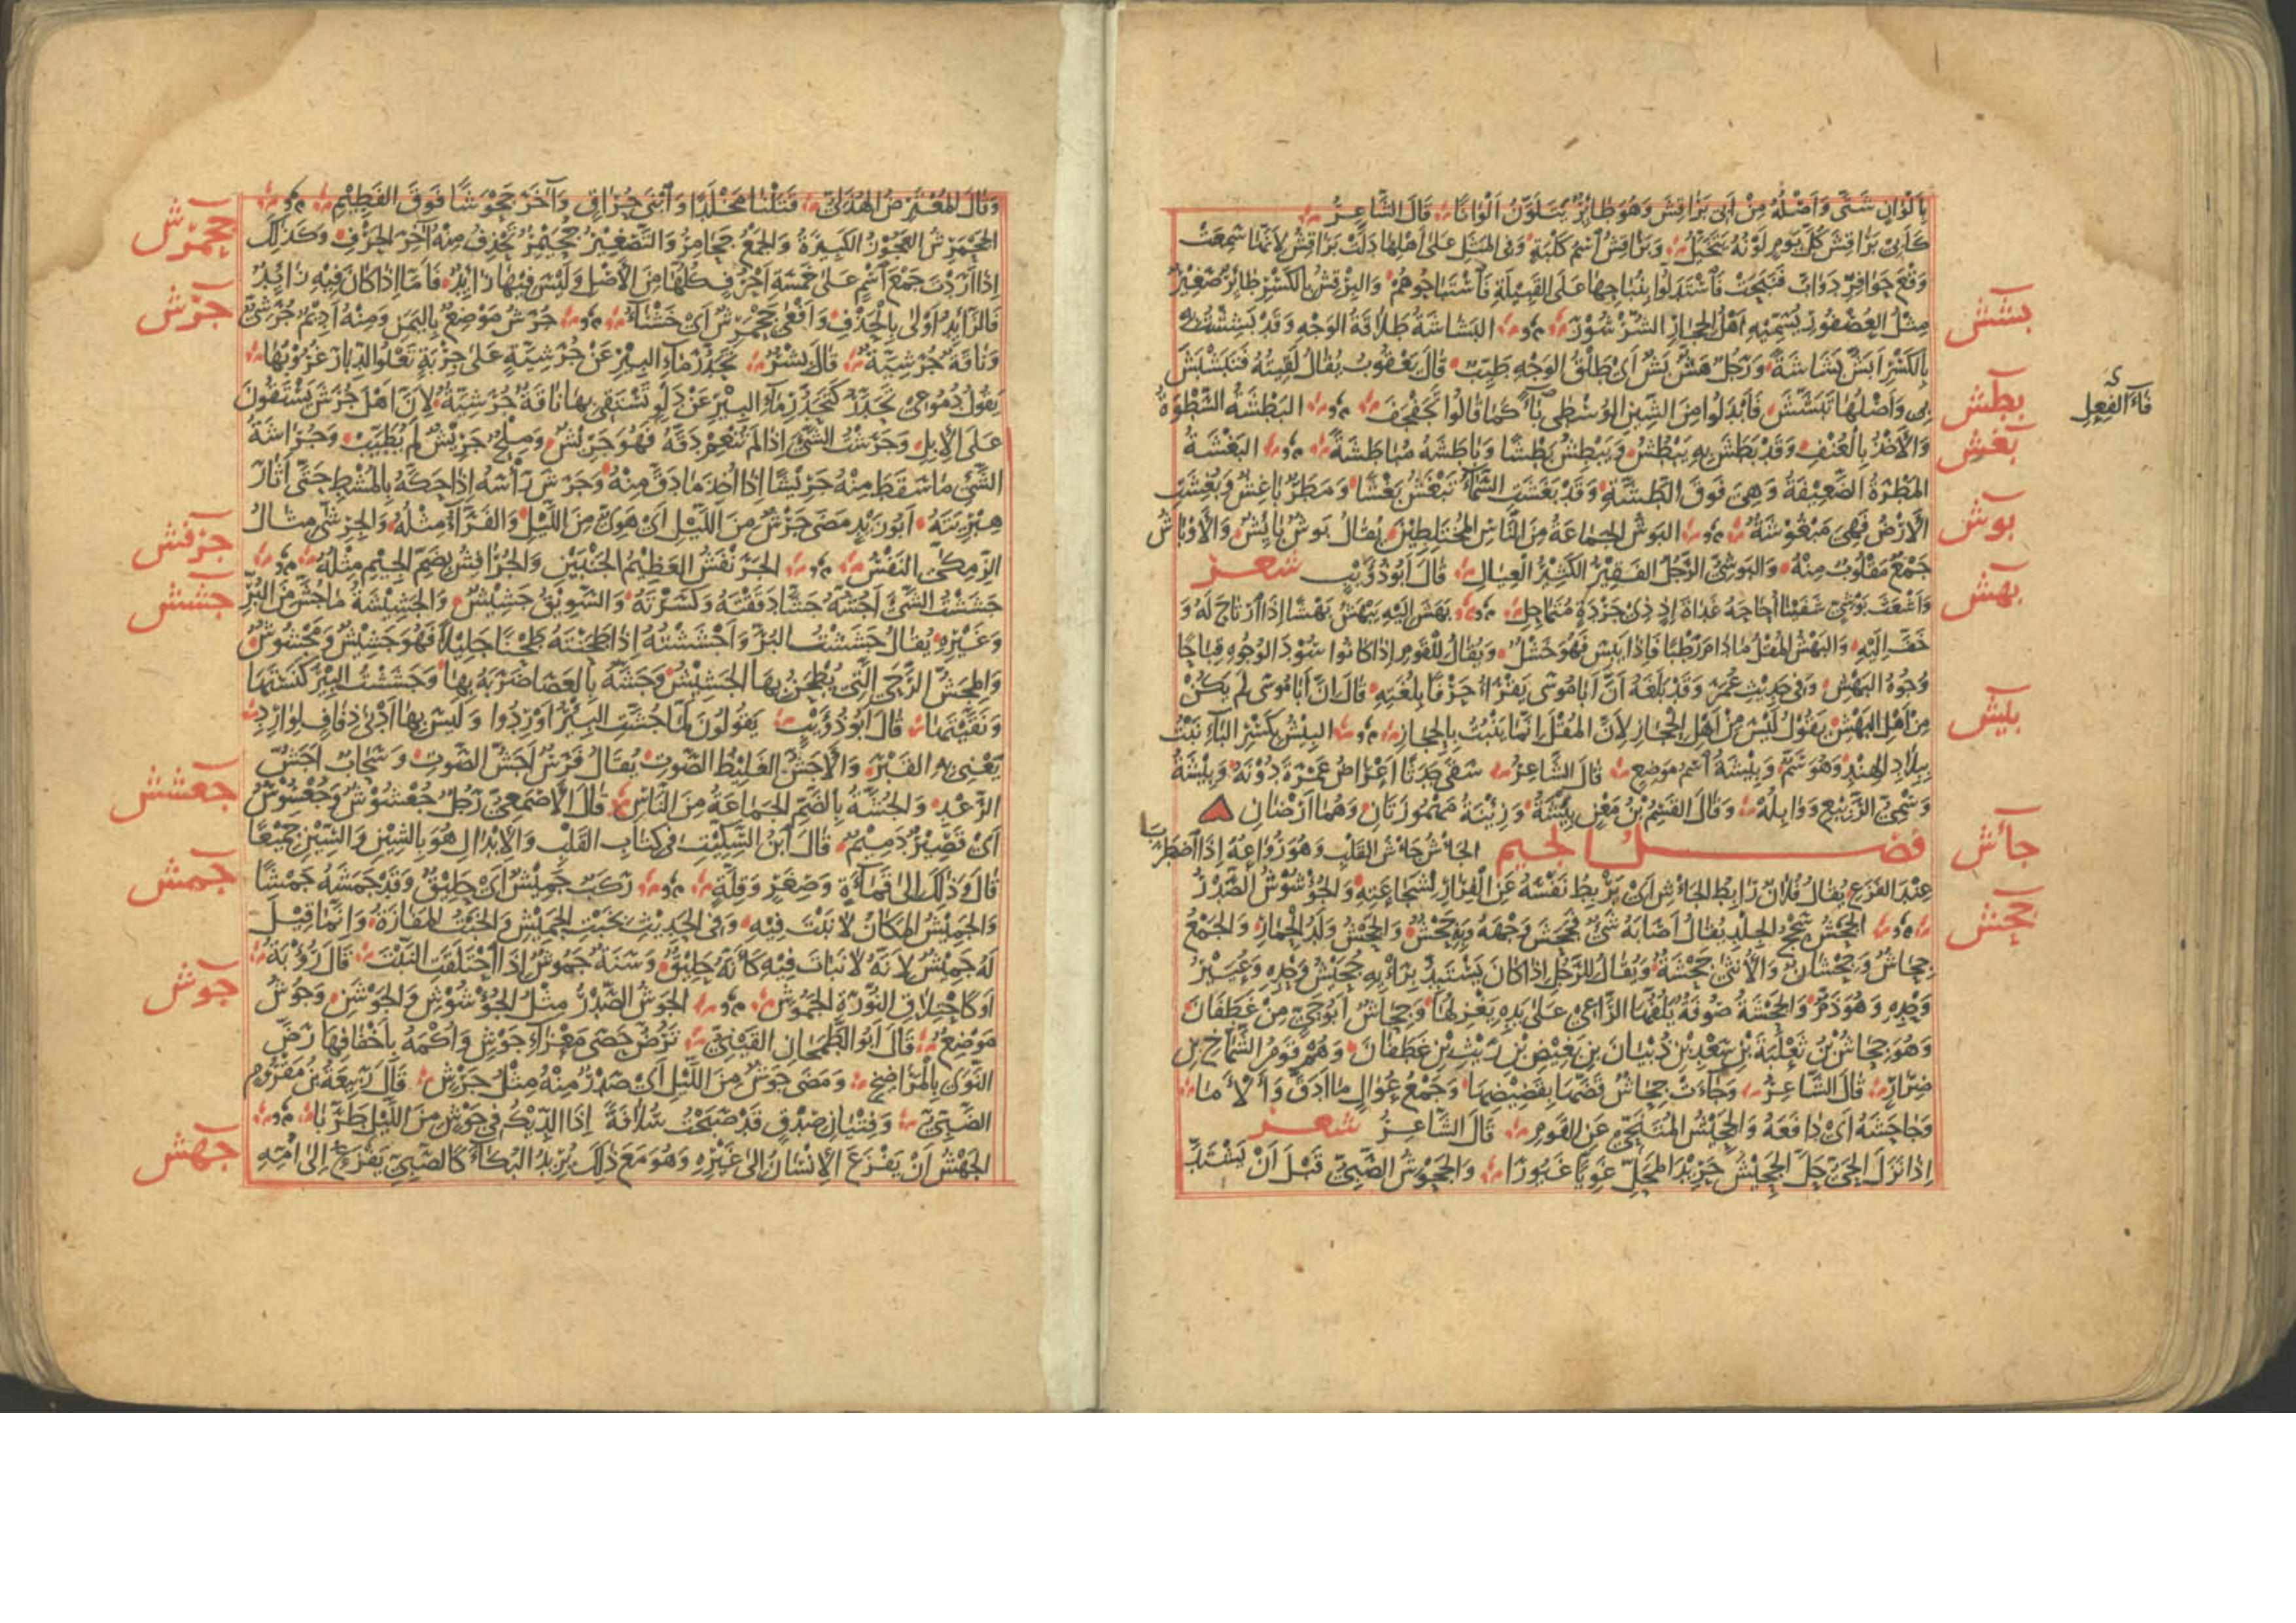 بِأَلْوَانٍ شَتَّى وَأَصْلُهُ مِنْ أَبِي بَرَاقِشَ وَهُوَ طَائِرٌ يَتَلَوَّنُ أَلْوَانًا قَالَ الشَّاعِرُ
كَأَبِي بَرَاقِشَ كُلَّ يَوْمٍ لَوْنُهُ يَتَخَيَّلُ وَبَرَاقِشُ اسْمُ كَلْبَةٍ وَفِي الْمَثَلِ عَلَى أَهْلِهَا دَلَّتْ بَرَاقِشُ لِأَنَّهَا سَمِعَتْ
وَقْعَ حَوَافِرِ دَوَابَّ فَنَبَحَتْ فَاسْتَدَلُّوا بِنُبَاحِهَا عَلَى الْقَبِيلَةِ فَاسْتَبَاحُوهُمْ وَالْبِرْقِشُ بِالْكَسْرِ طَائِرٌ صَغِيرٌ
مِثْلُ الْعُصْفُورِ يُسَمِّيهِ أَهْلُ الْحِجَازِ الشُّرْشُورَ
بشش
الْبَشَاشَةُ طَلَاقَةُ الْوَجْهِ وَقَدْ بَشِشْتُ بِهِ
بِالْكَسْرِ أَبَشُّ بَشَاشَةً وَرَجُلٌ هَشٌّ بَشٌّ أَيْ طَلْقُ الْوَجْهِ طَيِّبٌ قَالَ يَعْقُوبُ يُقَالُ لَقِيتُهُ فَتَبَشْبَشَ
بِي وَأَصْلُهَا تَبَشَّشَ فَأَبْدَلُوا مِنَ الشِّينِ الْوُسْطَى بَاءً كَمَا قَالُوا تَجَفْجَفَ
فَاءَ الْفِعْلِ
بطش
الْبَطْشَةُ السَّطْوَةُ
وَالْأَخْذُ بِالْعُنْفِ وَقَدْ بَطَشَ بِهِ يَبْطُشُ وَيَبْطِشُ بَطْشًا وَبَاطَشَهُ مُبَاطَشَةً
بغش
الْبَغْشَةُ
الْمَطْرَةُ الضَّعِيفَةُ وَهِيَ فَوْقَ الطَّشَّةِ وَقَدْ بَغَشَتِ السَّمَاءُ تَبْغَشُ بَغْشًا وَمَطَرٌ بَاغِشٌ وَبُغِشَتِ
الْأَرْضُ فَهِيَ مَبْغُوشَةٌ
بوش
الْبَوْشُ الْجَمَاعَةُ مِنَ النَّاسِ الْمُخْتَلِطِينَ يُقَالُ بَوْشٌ بَائِشٌ وَالْأَوْبَاشُ
جَمْعٌ مَقْلُوبٌ مِنْهُ وَالْبَوْشِيُّ الرَّجُلُ الْفَقِيرُ الْكَثِيرُ الْعِيَالِ قَالَ أَبُو ذُؤَيْبٍ شعر
وَأَشْعَثَ بَوْشِيٍّ شَفَيْنَا أُحَاحَهُ غَدَاةَ إِذٍ ذِي جَرْدَةٍ مُتَمَاحِلِ
بهش
بَهَشَ إِلَيْهِ يَبْهَشُ بَهْشًا إِذَا ارْتَاحَ لَهُ وَ
خَفَّ إِلَيْهِ وَالْبَهْشُ الْمُقْلُ مَا دَامَ رَطْبًا فَإِذَا يَبِسَ فَهُوَ خَشْلٌ وَيُقَالُ لِلْقَوْمِ إِذَا كَانُوا سُودَ الْوُجُوهِ قِبَاحًا
وُجُوهُ الْبَهْشِ وَفِي حَدِيثِ عُمَرَ وَقَدْ بَلَغَهُ أَنَّ أَبَا مُوسَى يَقْرَأُ حَرْفًا بِلُغَتِهِ قَالَ إِنَّ أَبَا مُوسَى لَمْ يَكُنْ
مِنْ أَهْلِ الْبَهْشِ يَقُولُ لَيْسَ مِنْ أَهْلِ الْحِجَازِ لِأَنَّ الْمُقْلَ إِنَّمَا يَنْبُتُ بِالْحِجَازِ
بيش
الْبِيشُ بِكَسْرِ الْبَاءِ نَبْتٌ
بِبِلَادِ الْهِنْدِ وَهُوَ سَمٌّ وَبِيشَةُ اسْمُ مَوْضِعٍ قَالَ الشَّاعِرُ سَقَى جَدَثًا أَعْرَاضُ غَمْرَةَ دُونَهُ وَبِيشَةُ
وَسْمِيِّ الرَّبِيعِ وَوَابِلُهْ وَقَالَ الْقَسِمُ بْنُ مَعْنٍ بِئْشَةُ وَزِئْنَةُ مَهْمُوزَتَانِ وَهُمَا أَرْضَانِ
فصل الجيم
جأش
الْجَأْشُ جَأْشُ الْقَلْبِ وَهُوَ رُوَاعُهُ إِذَا اضْطَرَبَ
عِنْدَ الْفَزَعِ يُقَالُ فُلَانٌ رَابِطُ الْجَأْشِ أَيْ يَرْبِطُ نَفْسَهُ عَنِ الْفِرَارِ لِشَجَاعَتِهِ وَالْجُؤْشُوشُ الصَّدْرُ
جحش
الْجَحْشُ سَحْجُ الْجِلْدِ يُقَالُ أَصَابَهُ شَيْءٌ فَجَحَشَ وَجْهَهُ وَبِهِ جَحْشٌ وَالْجَحْشُ وَلَدُ الْحِمَارِ وَالْجَمْعُ
جِحَاشٌ وَجِحْشَانٌ وَالْأُنْثَى جَحْشَةٌ وَيُقَالُ لِلرَّجُلِ إِذَا كَانَ يَسْتَبِدُّ بِرَأْيِهِ جُحَيْشُ وَحْدِهِ وَعُيَيْرُ
وَحْدِهِ وَهُوَ ذَمٌّ وَالْجَحْشَةُ صُوفَةٌ يَلُفُّهَا الرَّاعِي عَلَى يَدِهِ يَغْزِلُهَا وَجِحَاشٌ أَبُو حَيٍّ مِنْ غَطَفَانَ
وَهُوَ جِحَاشُ بْنُ ثَعْلَبَةَ بْنِ سَعْدِ بْنِ ذُبْيَانَ بْنِ بَغِيضِ بْنِ رَيْثِ بْنِ غَطَفَانَ وَهُمْ قَوْمُ الشَّمَّاخِ بْنِ
ضِرَارٍ قَالَ الشَّاعِرُ وَجَاءَتْ جِحَاشٌ قَضُّهَا بِقَضِيضِهَا وَجَمْعُ عُوَالٍ مَا أَدَقَّ وَأَلْأَمَا
وَجَاحَشَهُ أَيْ دَافَعَهُ وَالْجَحِيشُ الْمُتَنَحِّي عَنِ الْقَوْمِ قَالَ الشَّاعِرُ شعر
إِذَا نَزَلَ الْحَيُّ حَلَّ الْجَحِيشُ حَرِيدَ الْمَحَلِّ غَوِيًّا غَيُورًا وَالْجَحْوَشُ الصَّبِيُّ قَبْلَ أَنْ يَشْتَدَّ
وَقَالَ الْمُعْتَرِضُ الْهُذَلِيُّ قَتَلْنَا مَخْلَدًا وَابْنَيْ حُرَاقٍ وَآخَرَ جَحْوَشًا فَوْقَ الْفَطِيمِ
جحمرش
الْجَحْمَرِشُ الْعَجُوزُ الْكَبِيرَةُ وَالْجَمْعُ جَحَامِرُ وَالتَّصْغِيرُ جُحَيْمِرٌ تَحْذِفُ مِنْهُ آخِرَ الْحَرْفِ وَكَذَلِكَ
إِذَا أَرَدْتَ جَمْعَ اسْمٍ عَلَى خَمْسَةِ أَحْرُفٍ كُلُّهَا مِنَ الْأَصْلِ وَلَيْسَ فِيهَا زَائِدٌ فَأَمَّا إِذَا كَانَ فِيهِ زَائِدٌ
فَالزَّائِدُ أَوْلَى بِالْحَذْفِ وَأَفْعَى جَحْمَرِشٌ أَيْ خَشْنَاءُ
جرش
جُرَشُ مَوْضِعٌ بِالْيَمَنِ وَمِنْهُ أَدِيمٌ جُرَشِيٌّ
وَنَاقَةٌ جُرَشِيَّةٌ قَالَ بِشْرٌ تَحَدُّرَ مَاءِ الْبِئْرِ عَنْ جُرَشِيَّةٍ عَلَى جِرْبَةٍ تَعْلُو الدِّبَارَ غُرُوبُهَا
يَقُولُ دُمُوعِي تَحَدَّرُ كَتَحَدُّرِ مَاءِ الْبِئْرِ عَنْ دَلْوٍ تَسْتَقِي بِهَا نَاقَةٌ جُرَشِيَّةٌ لِأَنَّ أَهْلَ جُرَشَ يَسْتَقُونَ
عَلَى الْإِبِلِ وَجَرَشْتُ الشَّيْءَ إِذَا لَمْ تُنَعِّمْ دَقَّهُ فَهُوَ جَرِيشٌ وَمِلْحٌ جَرِيشٌ لَمْ يُطَيَّبْ وَجُرَاشَةُ
الشَّيْءِ مَا سَقَطَ مِنْهُ جَرِيشًا إِذَا أُخِذَ مَا دَقَّ مِنْهُ وَجَرَشَ رَأْسَهُ إِذَا حَكَّهُ بِالْمُشْطِ حَتَّى أَثَارَ
هِبْرِيَتَهُ أَبُو زَيْدٍ مَضَى جَرْشٌ مِنَ اللَّيْلِ أَيْ هَوِيٌّ مِنَ اللَّيْلِ وَالْفَرَّاءُ مِثْلُهُ وَالْجِرِشَّى مِثَالُ
الزِّمِكَّى النَّفْسُ
جرنفش
الْجَرَنْفَشُ الْعَظِيمُ الْجَنْبَيْنِ وَالْجُرَافِشُ بِضَمِّ الْجِيمِ مِثْلُهُ
جشش
جَشَشْتُ الشَّيْءَ أَجُشُّهُ جَشًّا دَقَقْتُهُ وَكَسَرْتُهُ وَالسَّوِيقُ جَشِيشٌ وَالْجَشِيشَةُ مَا جُشَّ مِنَ الْبُرِّ
وَغَيْرِهِ يُقَالُ جَشَشْتُ الْبُرَّ وَأَجْشَشْتُهُ إِذَا طَحَنْتَهُ طَحْنًا جَلِيلًا فَهُوَ جَشِيشٌ وَمَجْشُوشٌ
وَالْمِجَشُّ الرَّحَى الَّتِي يُطْحَنُ بِهَا الْجَشِيشُ وَجَشَّهُ بِالْعَصَا ضَرَبَهُ بِهَا وَجَشَشْتُ الْبِئْرَ كَنَسْتُهَا
وَنَقَّيْتُهَا قَالَ أَبُو ذُؤَيْبٍ يَقُولُونَ لَمَّا جُشَّتِ الْبِئْرُ أَوْرِدُوا وَلَيْسَ بِهَا أَدْنَى ذِفَافٍ لِوَارِدِ
يَعْنِي بِهِ الْقَبْرَ وَالْأَجَشُّ الْغَلِيظُ الصَّوْتِ يُقَالُ فَرَسٌ أَجَشُّ الصَّوْتِ وَسَحَابٌ أَجَشُّ
الرَّعْدِ وَالْجُشَّةُ بِالضَّمِّ الْجَمَاعَةُ مِنَ النَّاسِ
جعشش
قَالَ الْأَصْمَعِيُّ رَجُلٌ جُعْشُوشٌ وَجُعْسُوسٌ
أَيْ قَصِيرٌ دَمِيمٌ قَالَ ابْنُ السِّكِّيتِ فِي كِتَابِ الْقَلْبِ وَالْإِبْدَالِ هُوَ بِالشِّينِ وَالسِّينِ جَمِيعًا
قَالَ وَذَلِكَ إِلَى قَمْأَةٍ وَصِغَرٍ وَقِلَّةٍ
جمش
رَكَبٌ جَمِيشٌ أَيْ حَلِيقٌ وَقَدْ جَمَشَهُ جَمْشًا
وَالْجَمِيشُ الْمَكَانُ لَا نَبْتَ فِيهِ وَفِي الْحَدِيثِ بِخَبْتِ الْجَمِيشِ وَالْخَبْتُ الْمَفَازَةُ وَإِنَّمَا قِيلَ
لَهُ جَمِيشٌ لِأَنَّهُ لَا نَبَاتَ فِيهِ كَأَنَّهُ حَلِيقٌ وَسَنَةٌ جَمُوشٌ إِذَا احْتَلَقَتِ النَّبْتَ قَالَ رُؤْبَةُ
أَوْ كَاحْتِلَاقِ النُّورَةِ الْجَمُوشِ
جوش
الْجَوْشُ الصَّدْرُ مِثْلُ الْجُؤْشُوشِ وَالْجَوْشَنِ وَجَوْشٌ
مَوْضِعٌ قَالَ أَبُو الطَّمَحَانِ الْقَيْنِيُّ تَرُضُّ حَصَى مَعْزَاءِ جَوْشٍ وَأُكْمِهِ بِأَخْفَافِهَا رَضَّ
النَّوَى بِالْمَرَاضِخِ وَمَضَى جَوْشٌ مِنَ اللَّيْلِ أَيْ صَدْرٌ مِنْهُ مِثْلُ جَرْشٍ قَالَ رَبِيعَةُ بْنُ مَقْرُومٍ
الضَّبِّيُّ وَفِتْيَانِ صِدْقٍ قَدْ صَبَحْتُ سُلَافَةً إِذَا الدِّيكُ فِي جَوْشٍ مِنَ اللَّيْلِ طَرَّبَا
جهش
الْجَهْشُ أَنْ يَفْزَعَ الْإِنْسَانُ إِلَى غَيْرِهِ وَهُوَ مَعَ ذَلِكَ يُرِيدُ الْبُكَاءَ كَالصَّبِيِّ يَفْزَعُ إِلَى أُمِّهِ